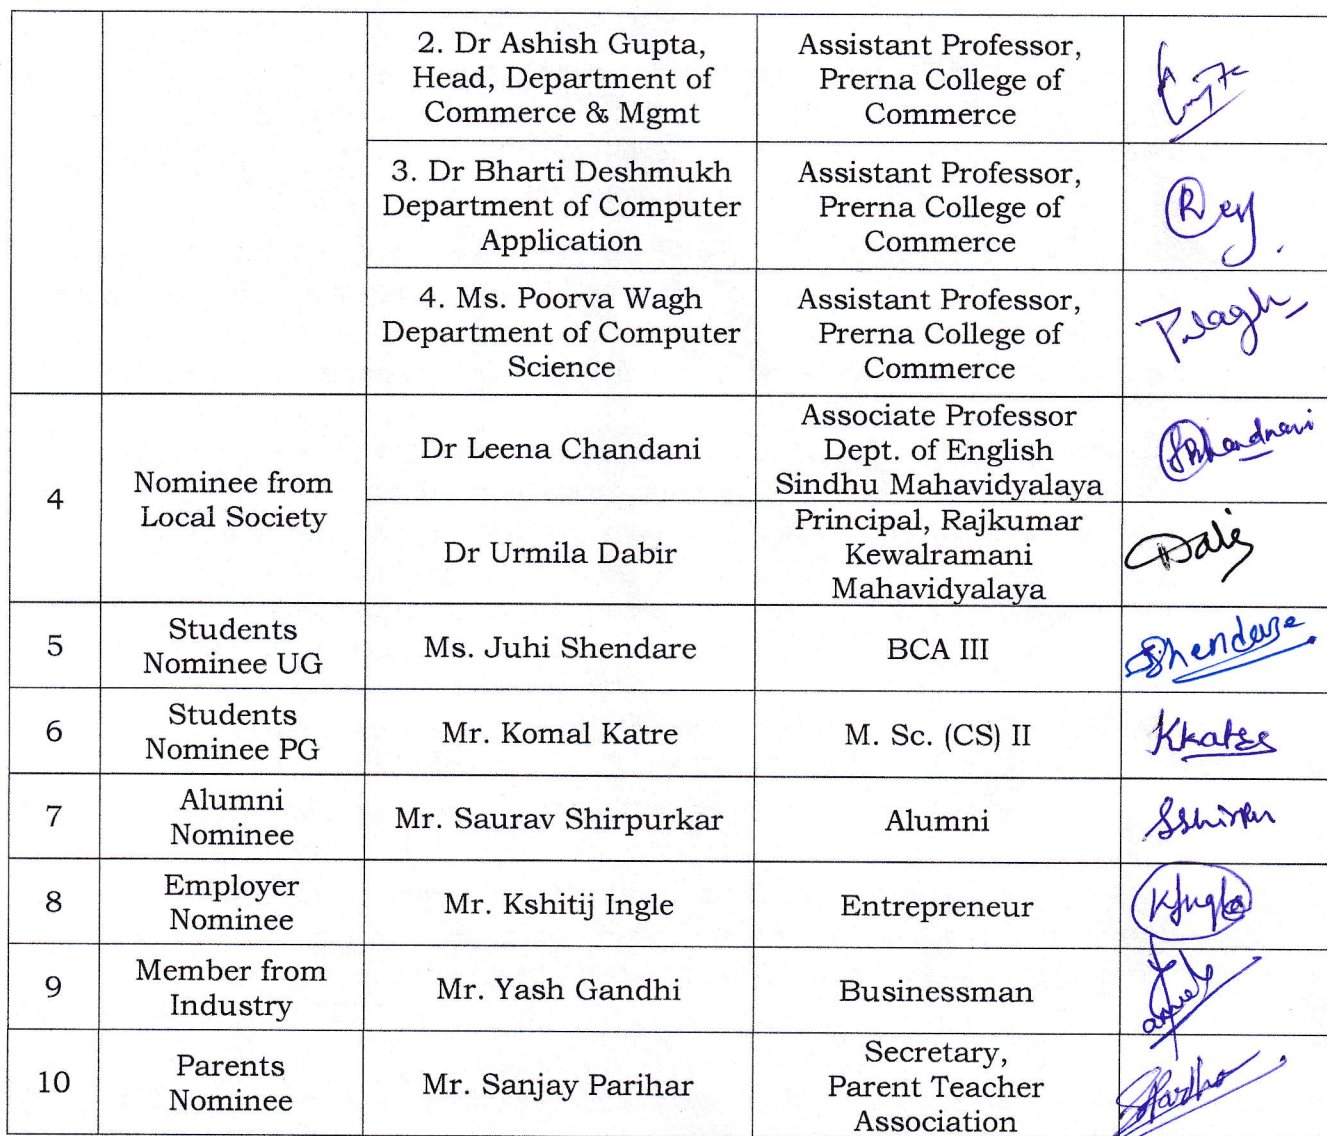 2. Dr Ashish Gupta,
Head, Department of
Commerce & Mgmt
Assistant Professor,
Prerna College of
Commerce
3. Dr Bharti Deshmukh
Department of Computer
Application
Assistant Professor,
Prerna College of
Commerce
4. Ms. Poorva Wagh
Department of Computer
Science
Assistant Professor,
Prerna College of
Commerce
4
Nominee from
Local Society
Dr Leena Chandani
Associate Professor
Dept. of English
Sindhu Mahavidyalaya
Dr Urmila Dabir
Principal, Rajkumar
Kewalramani
Mahavidyalaya
5
Students
Nominee UG
Ms. Juhi Shendare
BCA III
Shendare
6
Students
Nominee PG
Mr. Komal Katre
M. Sc. (CS) II
KKatre
7
Alumni
Nominee
Mr. Saurav Shirpurkar
Alumni
8
Employer
Nominee
Mr. Kshitij Ingle
Entrepreneur
KIngle
9
Member from
Industry
Mr. Yash Gandhi
Businessman
10
Parents
Nominee
Mr. Sanjay Parihar
Secretary,
Parent Teacher
Association